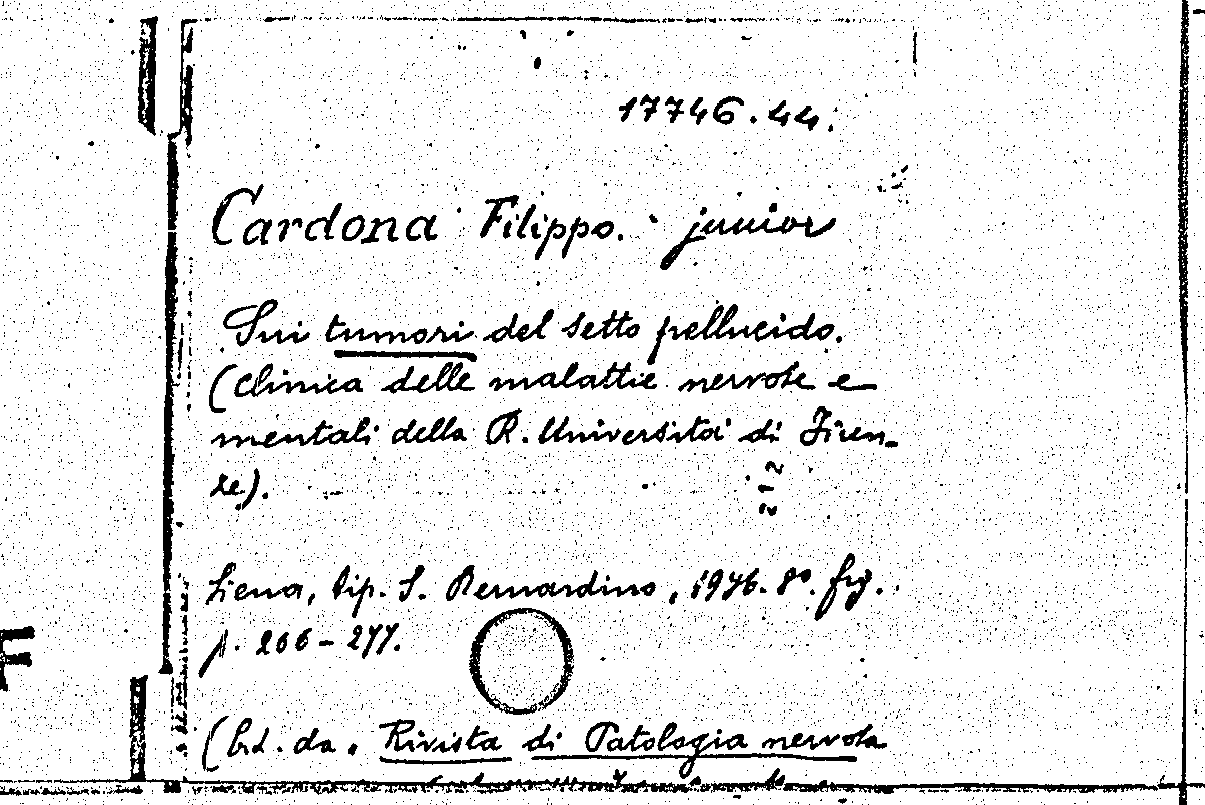 17746.44.
Cardona Filippo. junior
Sui tumori del setto pellucido.
(Clinica delle malattie nervose e
mentali della R. Università di Firen-
ze).
212
Siena, tip. S. Bernardino, 1936. 8°. fig.
p. 266-277.
(Estr. da. Rivista di Patologia nervosa
F